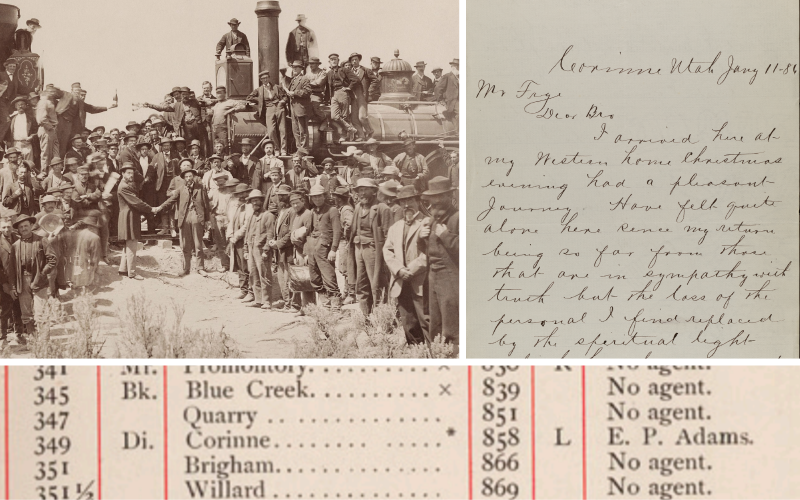 Corinne Utah Jany 11-86
Mr Frye
Dear Bro
I arrived here at
my Western home Christmas
evening had a pleasant
Journey. Have felt quite
alone here sence my return
being so far from those
that are in sympathy with
truth but the loss of the
personal I find replaced
by the speritual light
341 Mr. Promontory. . . . . . . . . × K No agent.
345 Bk. Blue Creek. . . . . . . . . . × 839 No agent.
347 Quarry . . . . . . . . . . . . . 851 No agent.
349 Di. Corinne . . . . . . . . . . . . * 858 L E. P. Adams.
351 Brigham. . . . . . . . . . . . 866 No agent.
351½ Willard . . . . . . . . . . . . 869 No agent.